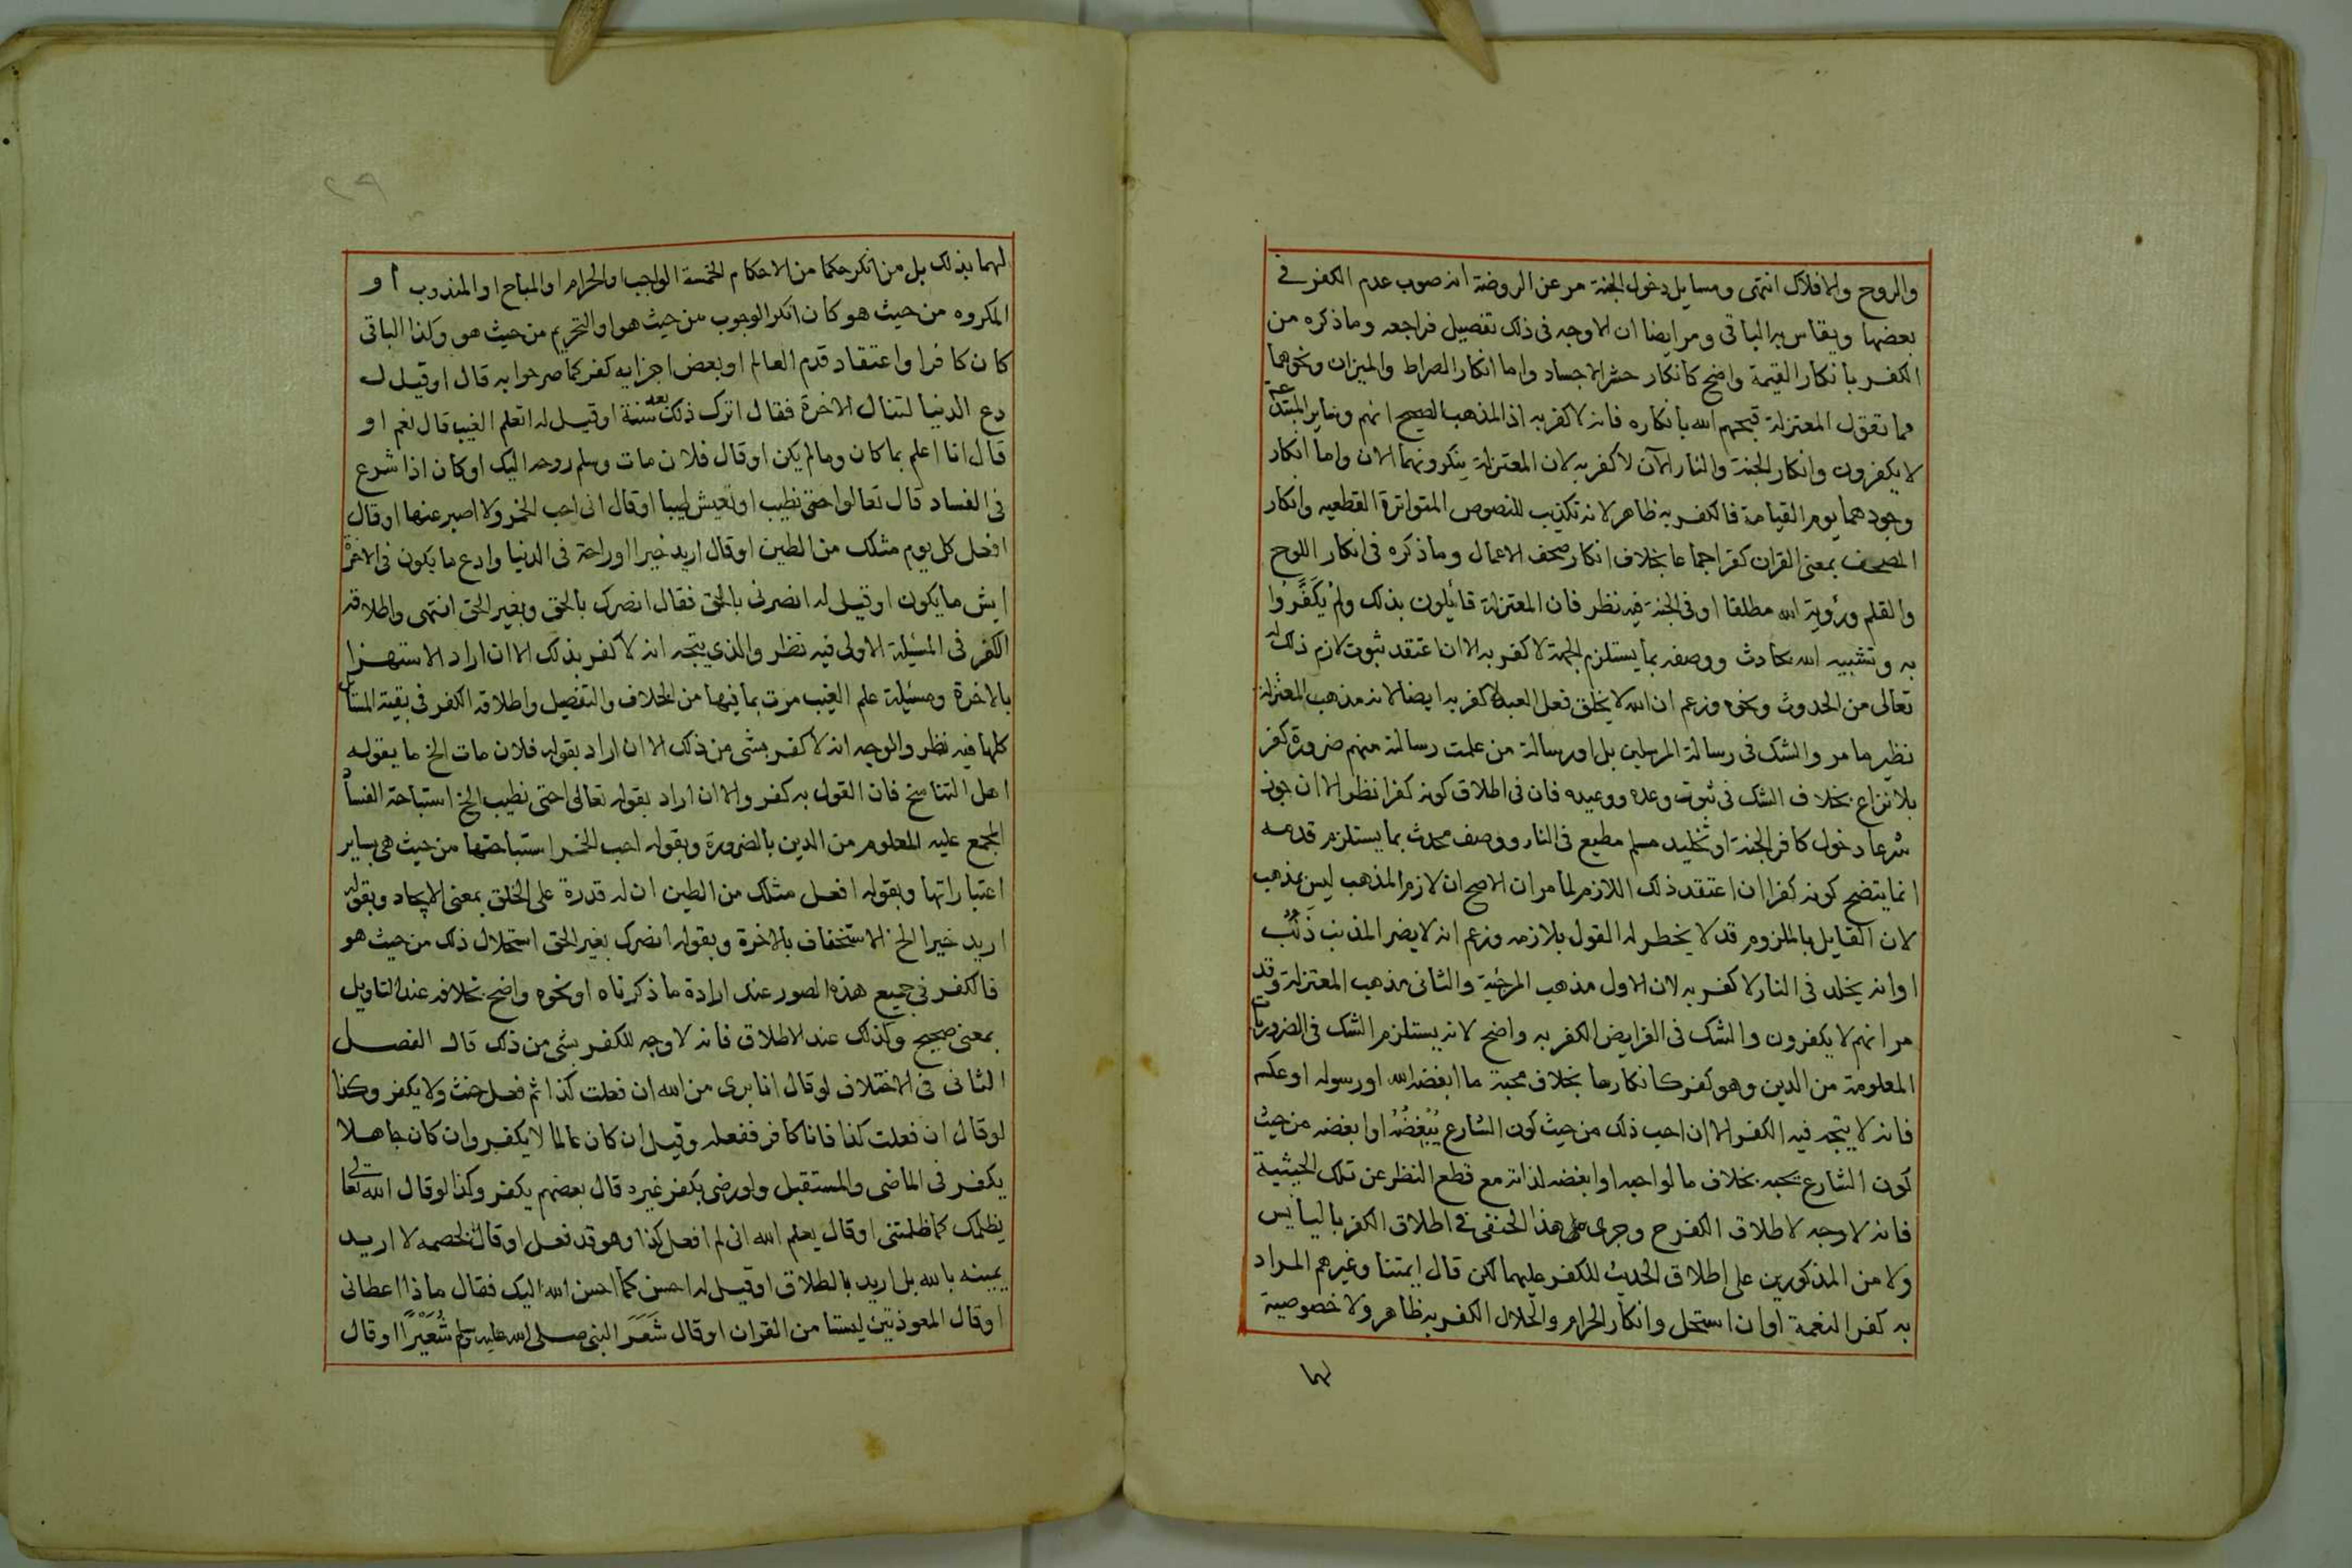 والروح والافلاك انتهى ومسايل دخول الجنة مر عن الروضة انه صوب عدم الكفر في
بعضها ويقاس به الباقي ومر ايضا ان الاوجه في ذلك تفصيل فراجعه وما ذكره من
الكفر بانكار القيمة واضح كانكار حشر الاجساد واما انكار الصراط والميزان ونحوهما
مما تقول المعتزلة قبحهم الله بانكاره فانه لا كفر به اذ المذهب الصحيح انهم وساير المبتدعة
لا يكفرون وانكار الجنة والنار الآن لا كفر به لان المعتزلة ينكرونهما الان واما انكار
وجودهما يوم القيامة فالكفر به ظاهر لانه تكذيب للنصوص المتواترة القطعيه وانكار
المصحف بمعنى القران كفر اجماعا بخلاف انكار صحف الاعمال وما ذكره في انكار اللوح
والقلم ورؤية الله مطلقا او في الجنة فيه نظر فان المعتزلة قائلون بذلك ولم يكفروا
به وتشبيه الله بحادث ووصفه بما يستلزم الجهة لا كفر به الا ان اعتقد ثبوت لازم ذلك له
تعالى من الحدوث ونحوه وزعم ان الله لا يخلق فعل العبد لا كفر به ايضا لانه مذهب المعتزلة
نظير ما مر والشك في رسالة المرسلين بل او رسالة من علمت رسالته منهم ضرورة كفر
بلا نزاع بخلاف الشك في ثبوت وعده ووعيده فان في اطلاق كونه كفرا نظر الا ان جوز
شرعا دخول كافر الجنة او تخليد مسلم مطيع في النار ووصف محدث بما يستلزم قدمه
انما يتضح كونه كفرا ان اعتقد ذلك اللازم لما مر ان الاصح ان لازم المذهب ليس بمذهب
لان القايل بالملزوم قد لا يخطر له القول بلازمه وزعم انه لا يضر المذنب ذنب
او انه يخلد في النار لا كفر به لان الاول مذهب المرجئة والثاني مذهب المعتزلة وقد
مر انهم لا يكفرون والشك في الفرايض الكفر به واضح لانه يستلزم الشك في الضروريات
المعلومة من الدين وهو كفر كانكارها بخلاف محبة ما ابغضه الله او رسوله او عكسه
فانه لا يتجه فيه الكفر الا ان احب ذلك من حيث كون الشارع يبغضه او ابغضه من حيث
كون الشارع يحبه بخلاف ما لو احبه او ابغضه لذاته مع قطع النظر عن تلك الحيثية
فانه لا وجه لاطلاق الكفر ح وجرى على هذا الحنفى في اطلاق الكفر باليأيس
ولا من المذكورين على اطلاق الحديث للكفر عليهما لكن قال ايمتنا وغيرهم المراد
به كفر النعمة او ان استحل وانكار الحرام والحلال الكفر به ظاهر ولا خصوصية
لهما
لهما بذلك بل من انكر حكما من الاحكام الخمسة الواجب او الحرام او المباح او المندوب او
المكروه من حيث هو كأن انكر الوجوب من حيث هو او التحريم من حيث هو وكذا الباقي
كان كافرا واعتقاد قدم العالم او بعض اجزايه كفر كما صرحوا به قال او قيل له
دع الدنيا لتنال الاخرة فقال اترك ذلك بعد سنة او قيل له اتعلم الغيب قال نعم او
قال انا اعلم بما كان وما لم يكن او قال فلان مات وسلم روحه اليك او كان اذا شرع
في الفساد قال تعالوا حتى نطيب او نعيش طيبا او قال اني احب الخمر ولا اصبر عنها او قال
افعل كل يوم مثلك من الطين او قال اريد خيرا او راحة في الدنيا وادع ما يكون في الاخرة
ايش ما يكون او قيل له انصرني بالحق فقال انصرك بالحق وبغير الحق انتهى واطلاقه
الكفر في المسئلة الاولى فيه نظر والذي يتجه انه لا كفر بذلك الا ان اراد الاستهزا
بالاخرة ومسئلة علم الغيب مرت بما فيها من الخلاف والتفصيل واطلاقه الكفر في بقية المسايل
كلها فيه نظر والوجه انه لا كفر بشى من ذلك الا ان اراد بقوله فلان مات الخ ما يقوله
اهل التناسخ فان القول به كفر والا ان اراد بقوله تعالى احتى نطيب الخ استباحة الفساد
المجمع عليه المعلوم من الدين بالضرورة وبقوله احب الخمر استباحتها من حيث هي بساير
اعتباراتها وبقوله افعل مثلك من الطين ان له قدرة على الخلق بمعنى الايجاد وبقوله
اريد خيرا الخ الاستخفاف بالاخرة وبقوله انصرك بغير الحق استحلال ذلك من حيث هو
فالكفر في جميع هذه الصور عند ارادة ما ذكرناه او نحوه واضح بخلافه عند التاويل
بمعنى صحيح وكذلك عند الاطلاق فانه لا وجه للكفر بشى من ذلك قال الفصل
الثاني في الاختلاف لو قال انا بري من الله ان فعلت كذا ثم فعل حنث ولا يكفر وكذا
لو قال ان فعلت كذا فانا كافر ففعله وقيل ان كان عالما لا يكفر وان كان جاهلا
يكفر في الماضي والمستقبل ولو رضى بكفر غيره قال بعضهم يكفر وكذا لو قال الله تعالى
يظلمك كما ظلمتني او قال يعلم الله اني لم افعل كذا وهو قد فعل او قال لخصمه لا اريد
يمينه بالله بل اريد بالطلاق او قيل له احسن كما احسن الله اليك فقال ماذا اعطاني
او قال المعوذتين ليستا من القران او قال شَعَرَ النبي صلى الله عليه وسلم شُعَيْرًا او قال